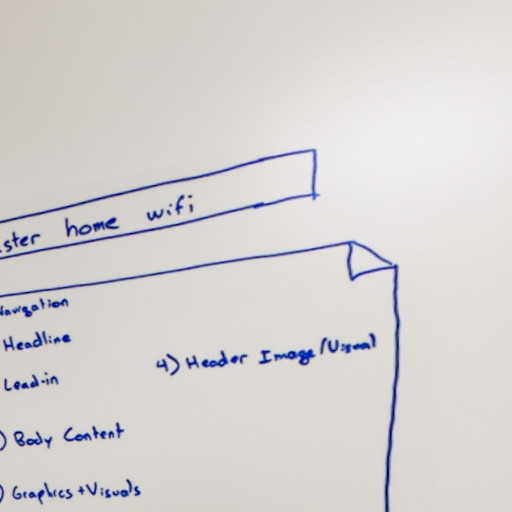 home wifi
Navigation
Headline
4) Header Image/Visual
Lead-in
) Body Content
) Graphics + Visuals